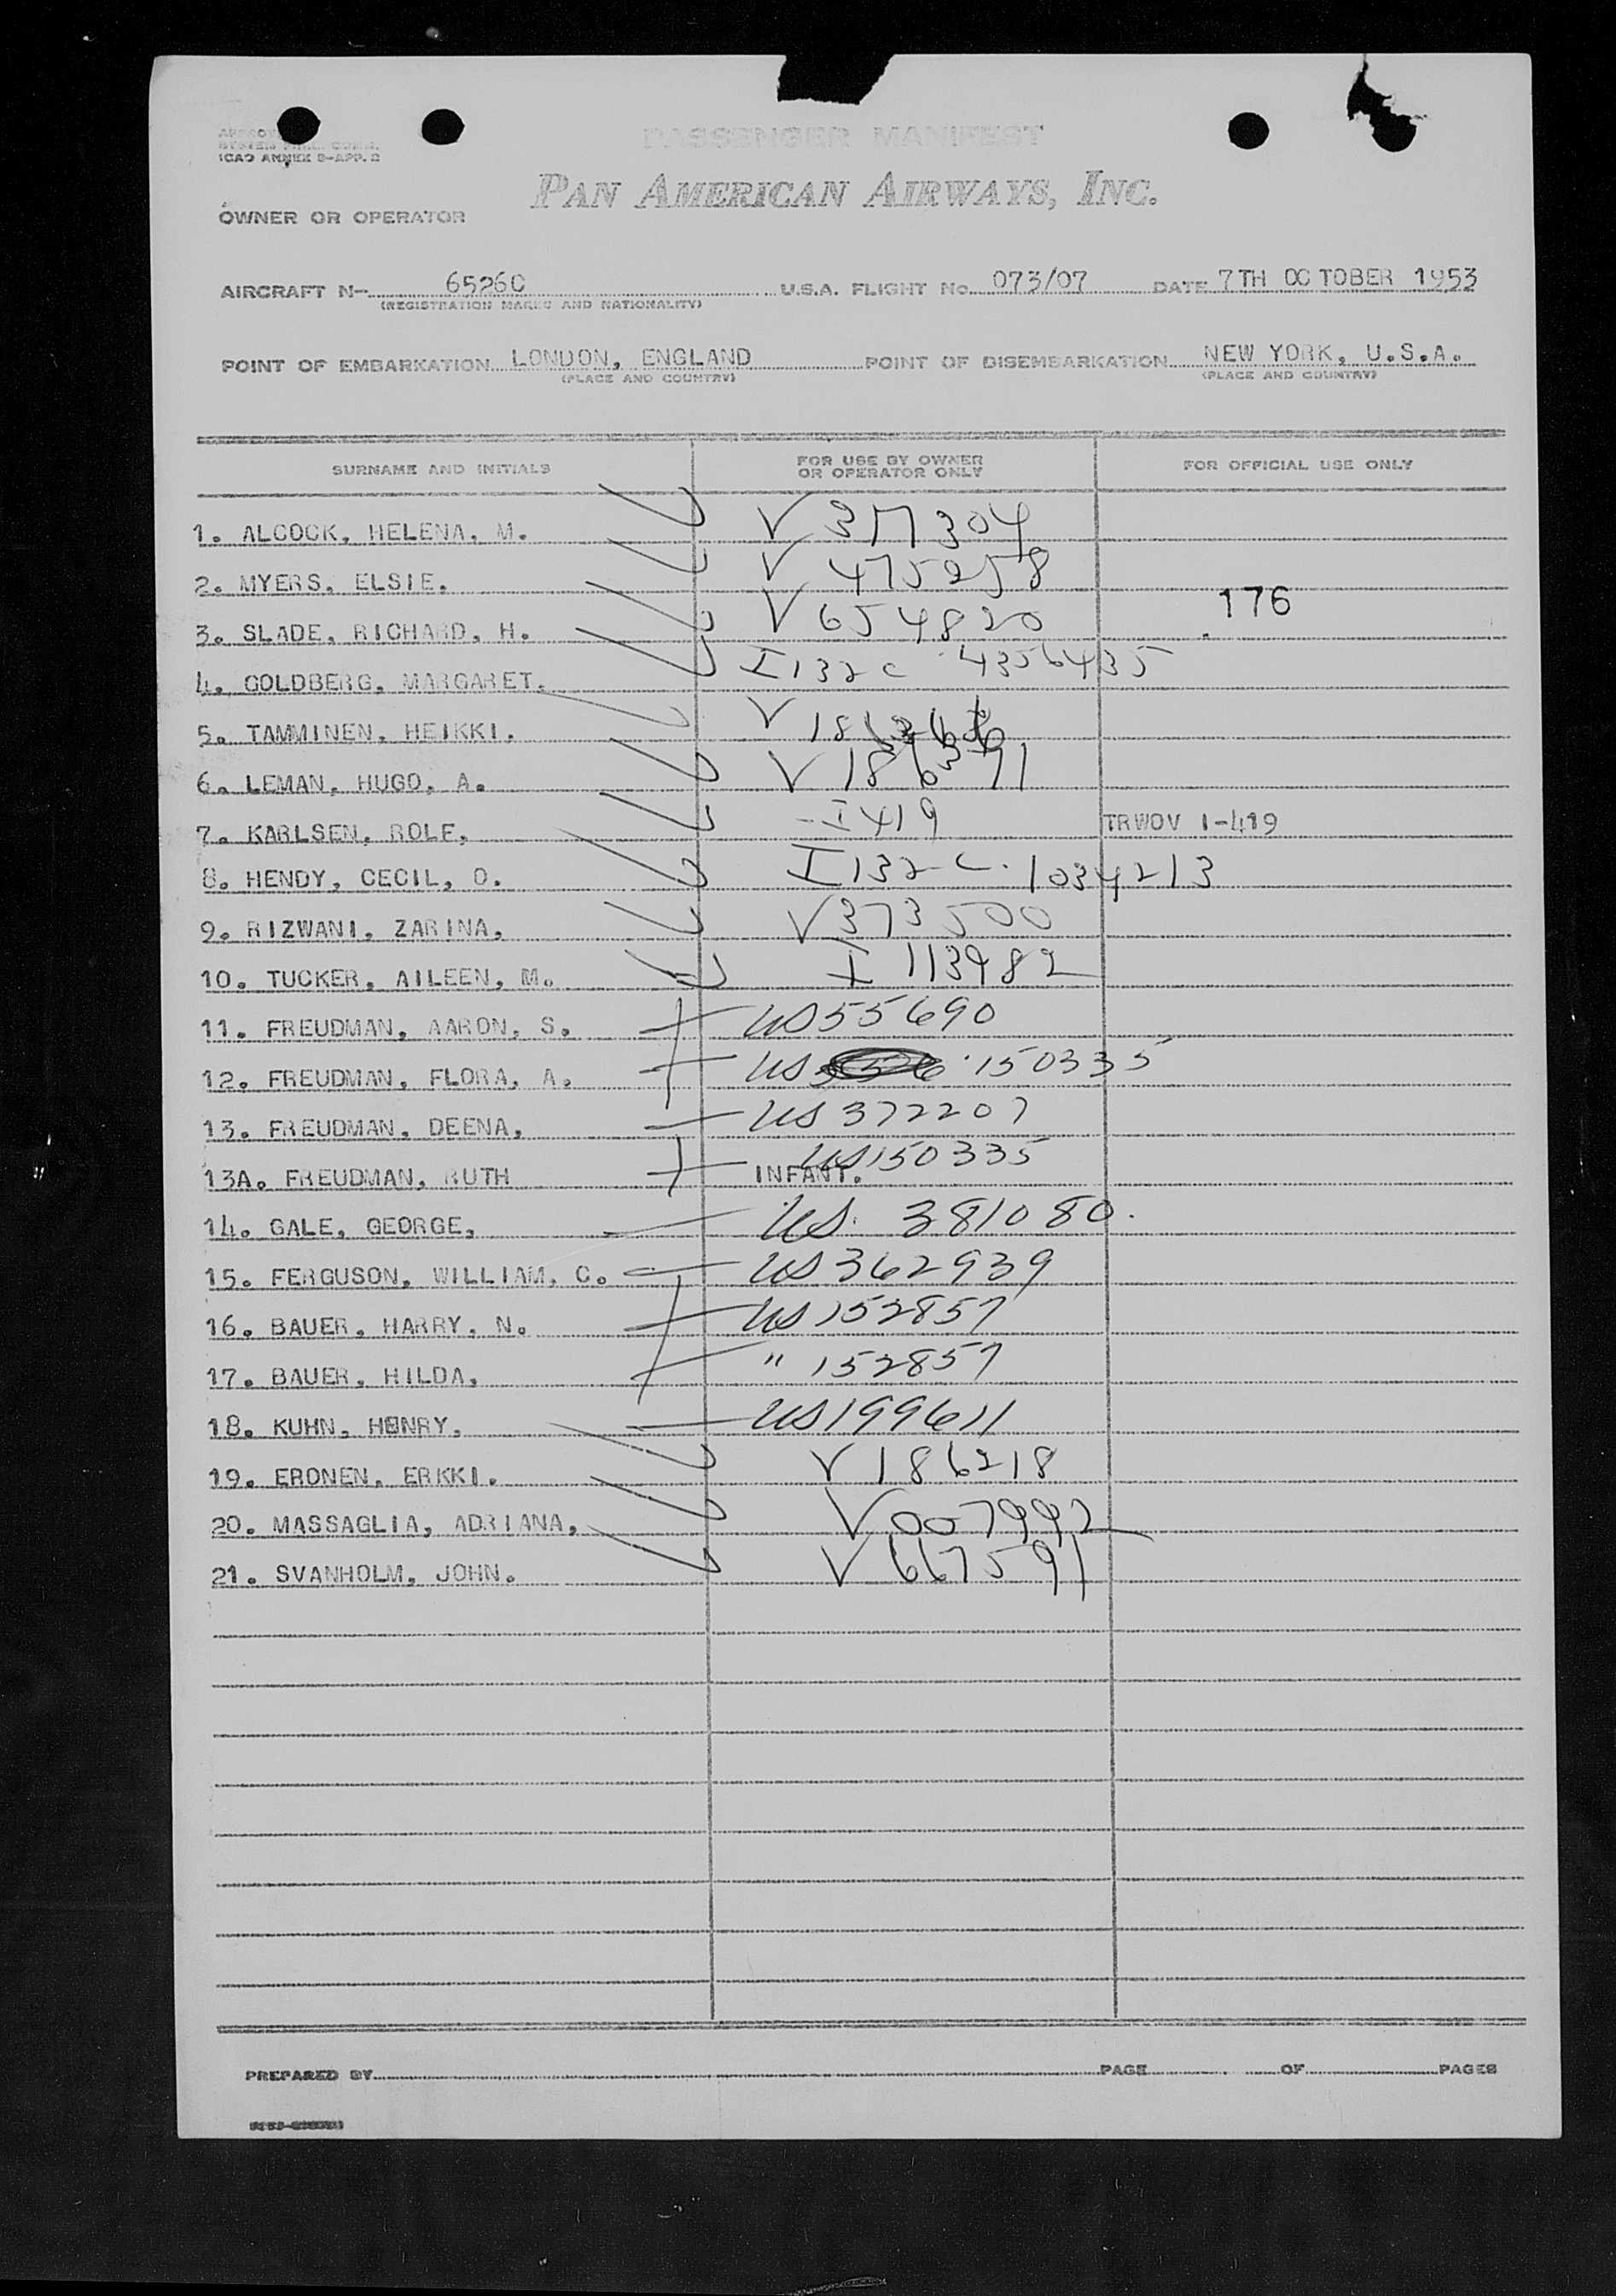 PASSENGER MANIFEST
ICAO ANNEX 9-APP. 2
PAN AMERICAN AIRWAYS, INC.
OWNER OR OPERATOR
AIRCRAFT N- 65260 U.S.A. FLIGHT No. 073/07 DATE 7TH OCTOBER 1953
(REGISTRATION MARKS AND NATIONALITY)
POINT OF EMBARKATION LONDON, ENGLAND POINT OF DISEMBARKATION NEW YORK, U.S.A.
(PLACE AND COUNTRY) (PLACE AND COUNTRY)
SURNAME AND INITIALS FOR USE BY OWNER OR OPERATOR ONLY FOR OFFICIAL USE ONLY
1. ALCOCK, HELENA, M. V 377304
2. MYERS, ELSIE. V 475258
176
3. SLADE, RICHARD, H. V 654820
4. GOLDBERG, MARGARET. I 132 C 4356435
5. TAMMINEN, HEIKKI. V
6. LEMAN, HUGO, A. V 186371
7. KARLSEN, ROLF, I 419 TRWOV I-419
8. HENDY, CECIL, O. I 132 C. 1034213
9. RIZWANI, ZARINA, V 373500
10. TUCKER, AILEEN, M. I 113982
11. FREUDMAN, AARON, S. US 55690
12. FREUDMAN, FLORA, A. US 150335
13. FREUDMAN, DEENA, US 372207
13A. FREUDMAN, RUTH INFANT. US 150335
14. GALE, GEORGE, US. 381080.
15. FERGUSON, WILLIAM, C. US 362939
16. BAUER, HARRY, N. US 152857
17. BAUER, HILDA, " 152857
18. KUHN, HENRY, US 199611
19. ERONEN, ERKKI. V 186218
20. MASSAGLIA, ADRIANA, V 007992
21. SVANHOLM, JOHN. V 667591
PREPARED BY PAGE OF PAGES